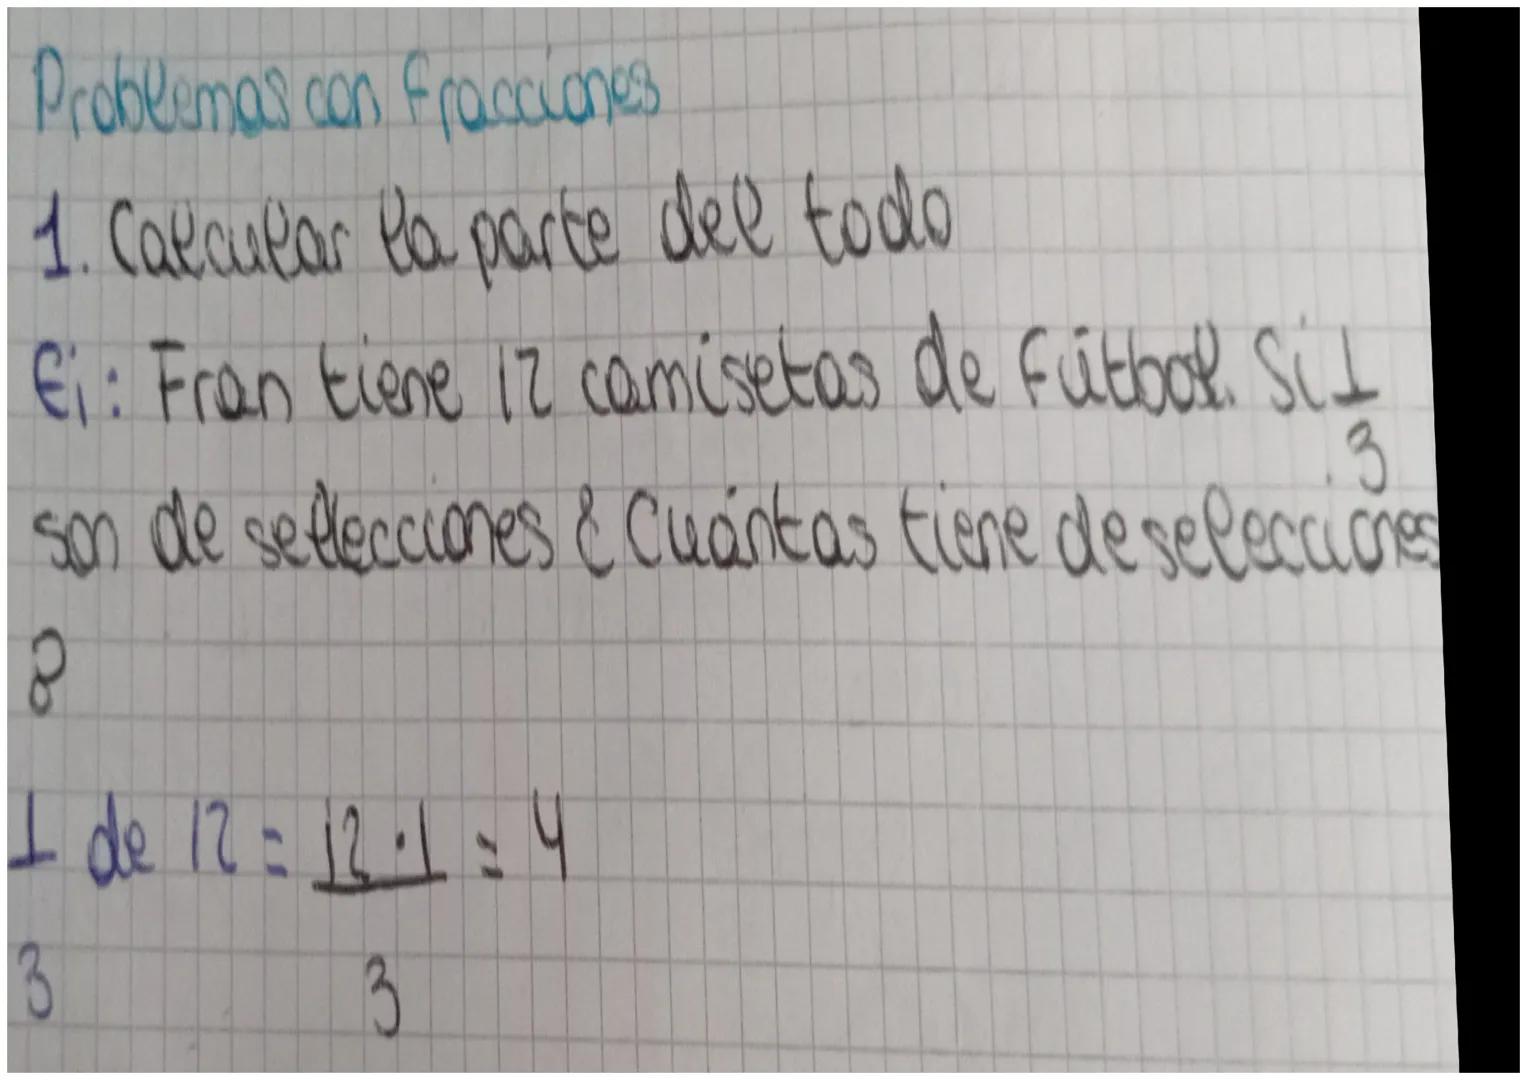 Problemas con fracciones
1. Calcular la parte del todo
Ej: Fran tiene 12 camisetas de fútbol. Si 1
3
son de sellecciones ¿Cuántas tiene de selecciones
?
1 de 12 = 12 · 1 = 4
3 3